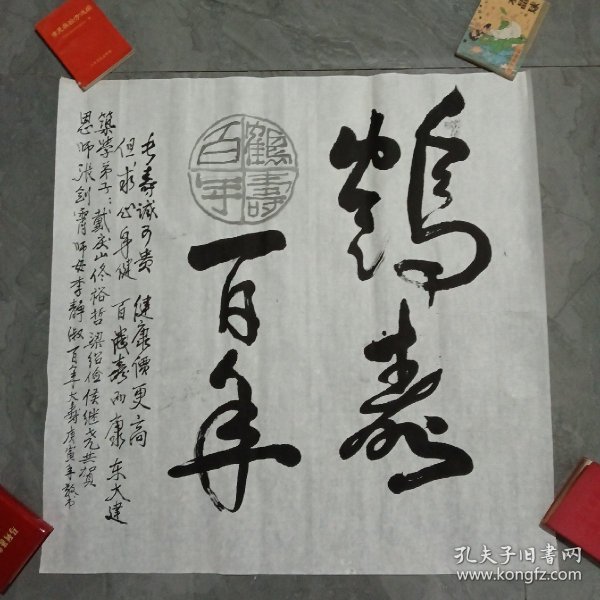 鶴壽
百年
鶴壽百年
長壽誠可貴 健康價更高
但求心身健 百歲壽而康 东大建
築學弟子：戴庆山佟裕哲梁绍俭侯继尧共贺
恩师張剑霄师母李静淑百年大寿庚寅年敬书
孔夫子旧书网
www.kongfz.com